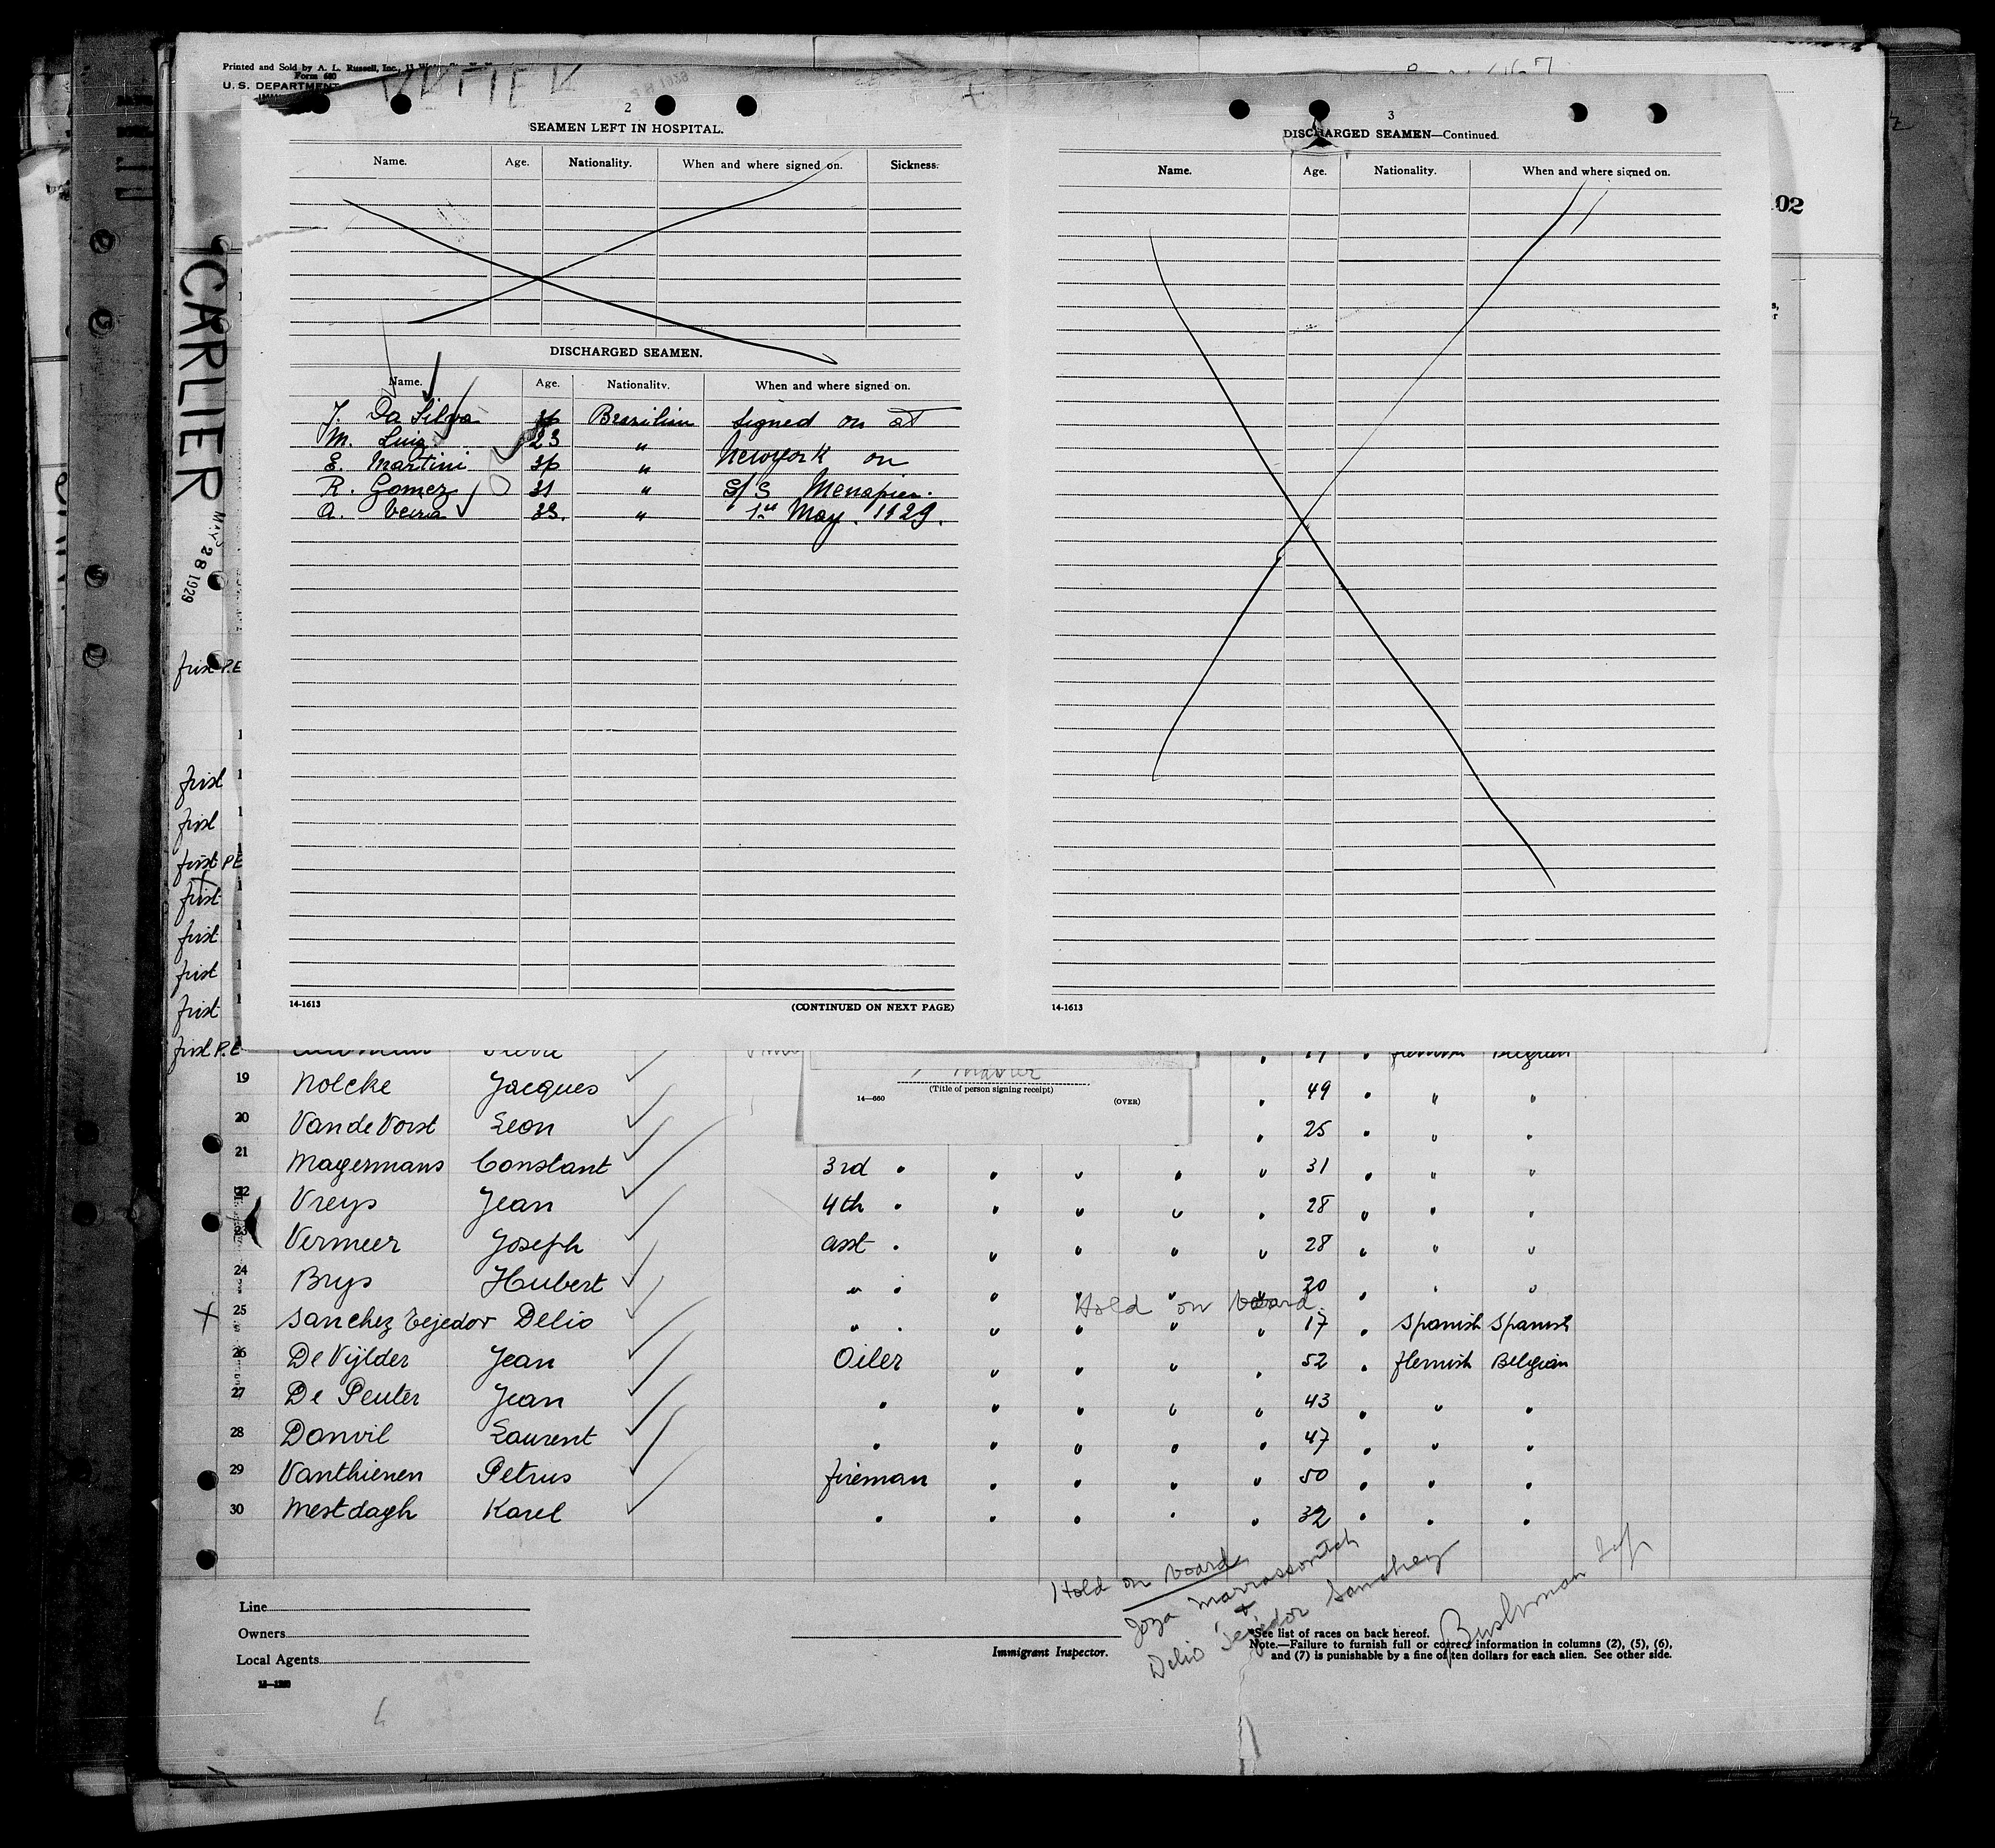 Printed and Sold by A. L. Russell, Inc., 13
Form 680
U. S. DEPARTMENT
02
CARLIER
MAY 28 1929
2
SEAMEN LEFT IN HOSPITAL.
Name. Age. Nationality. When and where signed on. Sickness.
DISCHARGED SEAMEN.
Name. Age. Nationality. When and where signed on.
J. Da Silva Brazilian signed on at
M. Luiz 23 " Newyork on
E. Martini 36 " S/S Menapier.
R. Gomez 31 " 1st May. 1929.
A. Veira 33. "
14-1613 (CONTINUED ON NEXT PAGE)
3
DISCHARGED SEAMEN—Continued.
Name. Age. Nationality. When and where signed on.
14-1613
first P.E
first
first
first P.E
first
first
first
first
first P.E
Pierre flemish Belgian
Master
(Title of person signing receipt)
14—660 (OVER)
19 Nolcke Jacques 49 " "
20 Van de Vorst Leon 25 " "
21 Magermans Constant 3rd " " " " " 31 " " "
22 Vreys Jean 4th " " " " " 28 " " "
23 Vermeer Joseph asst " " " " " 28 " " "
24 Brys Hubert " " " " " " 20 " " "
Hold on board.
+ 25 Sanchez Tejedor Delio " " " " " " 17 " Spanish Spanish
26 De Vijlder Jean Oiler " " " " 52 " flemish Belgian
27 De Peuter Jean " " " " " 43 " " "
28 Danvil Laurent " " " " " 47 " " "
29 Vanthienen Petrus fireman " " " " 50 " " "
30 Mestdagh Karel " " " " " 32 " " "
Hold on board
Joza Marrassovitch
+
Delio Tejedor Sanchez
Line
Owners
Local Agents
Immigrant Inspector.
See list of races on back hereof.
Note.—Failure to furnish full or correct information in columns (2), (5), (6),
and (7) is punishable by a fine of ten dollars for each alien. See other side.